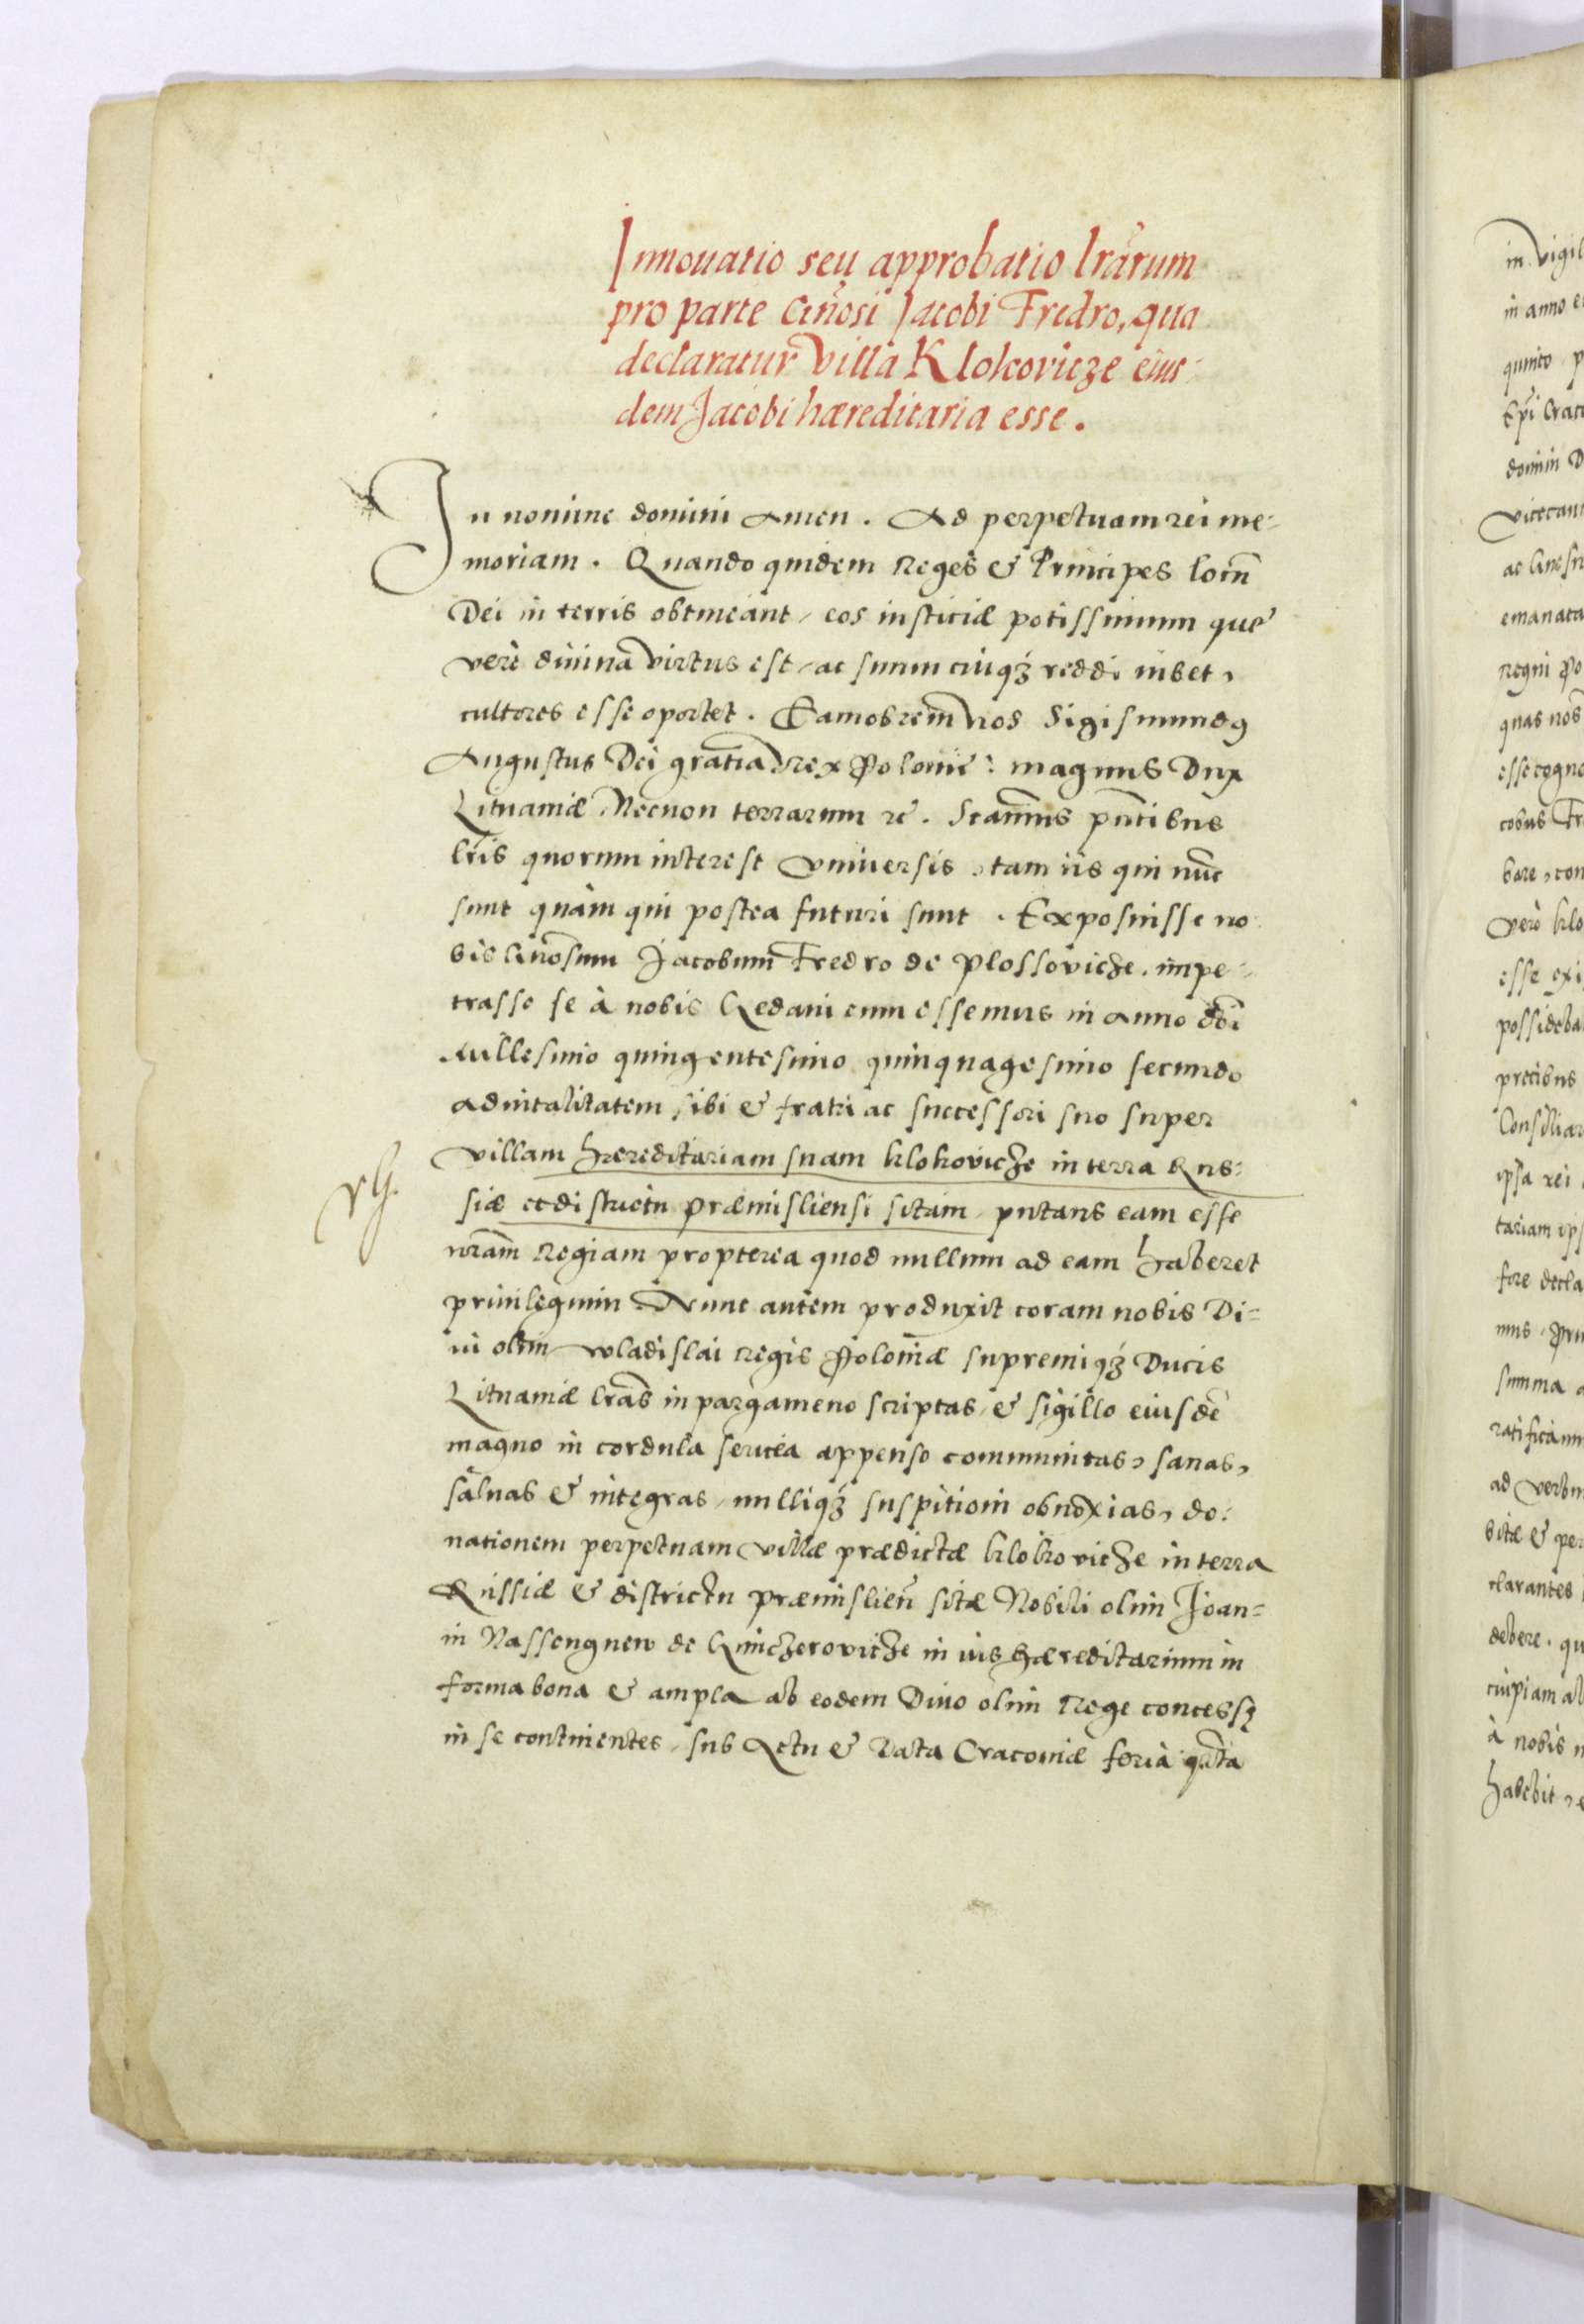 Innouatio seu approbatio lrãrum
pro parte Gñosi Jacobi Fredro, qua
declaratur villa Klokovicze eius-
dem Jacobi hæreditaria esse.
In nomine domini Amen. Ad perpetuam rei me-
moriam. Quando quidem Reges & Principes locũ
Dei in terris obtineant, eos iusticiæ potissimum que
verè diuina virtus est, ac suum cuiqꝫ reddi iubet,
cultores esse oportet. Eamobrem nos Sigismundꝰ
Augustus Dei gratia Rex Poloniæ: magnus Dux
Lituaniæ Necnon terrarum ꝛc. Scimus pñtibus
lris quorum interest vniuersis, tam iis qui nũc
sunt quàm qui postea futuri sunt. Exposuisse no
bis Gnosum Jacobum Fredro de Plossovicze, impe-
trasse se à nobis Gedani cum essemus in Anno dñi
Millesimo quingentesimo quinquagesimo secundo
aduitalitatem sibi & fratri ac successori suo super
villam hæreditariam suam klokovicze in terra Rus-
siæ et districtu præmisliensi sitam, putans eam esse
nrãm Regiam propterea quod nullum ad eam haberet
priuilegium. Nunc autem produxit coram nobis Di-
ui olim wladislai Regis Poloniæ supremiqꝫ Ducis
Lituaniæ lrãs in pargameno scriptas, & sigillo eiusdẽ
magno in cordula sericea appenso communitas, sanas,
saluas & integras, nulliqꝫ suspitioni obnoxias, do-
nationem perpetuam villæ prædictæ klokovicze in terra
Russiæ & districtu præmislieñ sitæ Nobili olim Joan-
ni Nassengnew de in ius hæreditarium in
forma bona & ampla ab eodem Diuo olim Rege concessꝫ
in se continentes, sub Actu & Data Cracouiæ feria
in vigil
in anno
quinto p
Epi Crac
domin D
ac
emanata
Regni Po
quas nos
esse cogno
cobus Fr
bare, con
verò klo
esse exi
possideba
precibus
Consiliar
ipsa rei
tariam ips
fore decla
mus
summa a
ratificam
ad verbu
bitæ & per
clarantes
debere, qu
cuipiam al
à nobis
habebit,